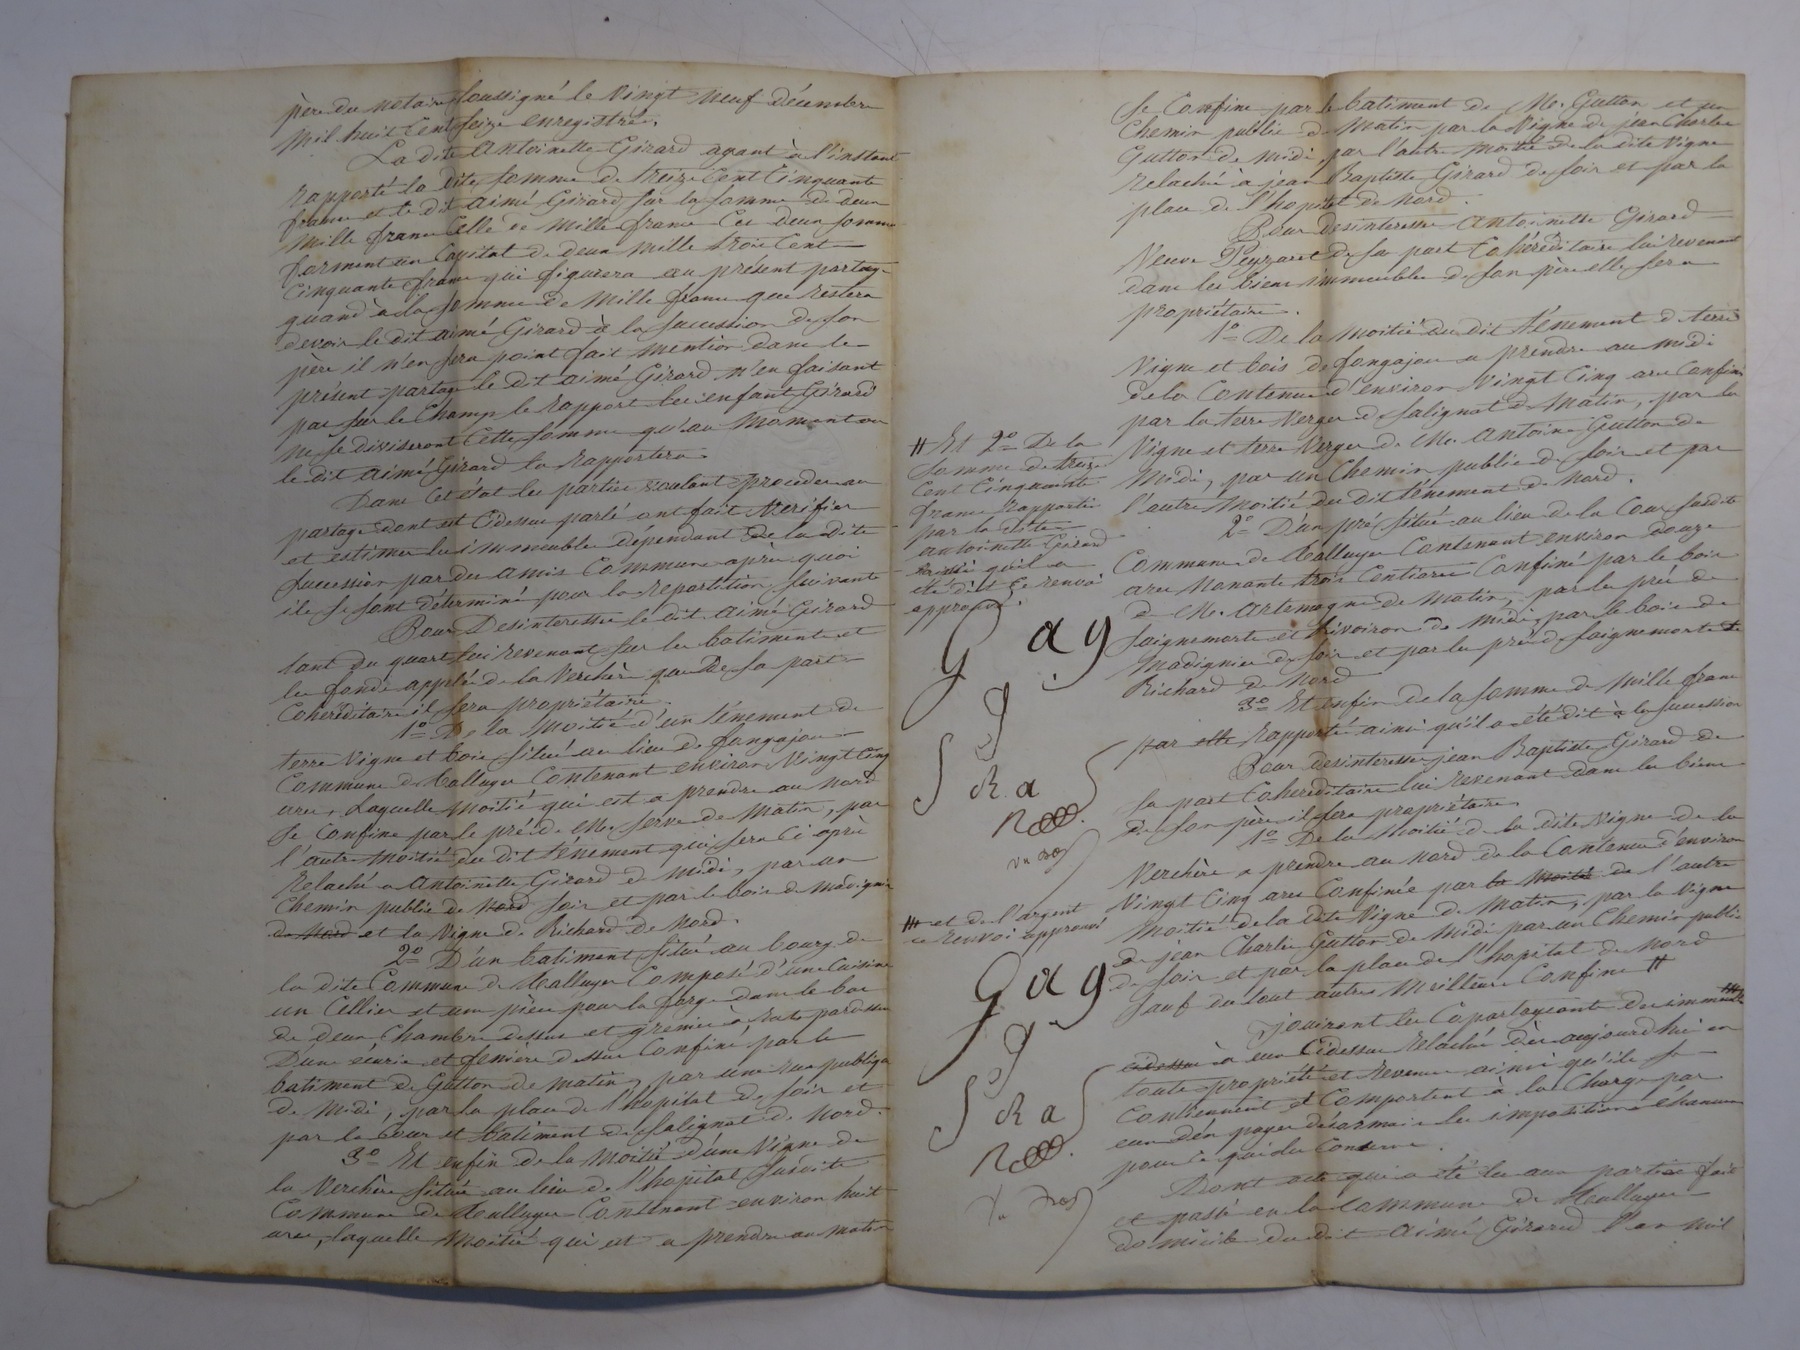 père du notaire soussigné le vingt neuf décembre
mil huit cent seize enregistrée.
La dite Antoinette Girard ayant à l'instant
rapporté la dite somme de treize cent cinquante
francs et le dit aimé Girard sur la somme de deux
mille francs celle de mille francs ces deux sommes
forment un capital de deux mille trois cent
cinquante francs qui figurera au présent partage
quand à la somme de mille francs que restera
devoir le dit aimé Girard à la succession de son
père il n'en sera point fait mention dans le
présent partage le dit aimé Girard n'en faisant
pas sur le champ le rapport les enfants Girard
ne se diviseront cette somme qu'au moment ou
le dit aimé Girard la rapportera.
Dans cet état les parties voulant proceder au
partage dont est cidessus parlé ont fait vérifier
et estimer les immeubles dépendant de la dite
succession par des amis communs après quoi
ils se sont déterminé pour la repartition suivante
Pour desinteresser le dit aimé Girard
tant du quart lui revenant sur les batiments et
les fonds appelés de la Verchère que de sa part
cohéréditaire il sera propriétaire.
1o De la moitié d'un ténement de
terre vigne et bois situé au lieu de fongajou
commune de Thalluyer contenant environ vingt cinq
ares, laquelle moitié qui est a prendre au nord
se confine par le pré de Me. Serve de matin, par
l'autre moitié du dit ténement qui sera ci après
relaché a Antoinette Girard de midi, par un
chemin public de nord soir et par le bois de Madignier
de nord et la vigne de Richard de nord.
2o D'un batiment situé au bourg de
la dite commune de Thalluyer composé d'une cuisine
un cellier et une pièce pour la forge dans le bas
de deux chambres dessus et grenier à rats pardessus
d'une écurie et fenière dessus confiné par le
batiment de Gutton de matin, par une rue publique
de midi, par la place de l'hopital de soir et
par la cour et batiment de Salignat de nord.
3o Et enfin de la moitié d'une vigne de
la Verchère située au lieu de l'hopital susdite
commune de Thalluyer contenant environ huit
ares, laquelle moitié qui est a prendre au matin
H Et 2o De la
somme de treize
cent cinquante
francs rapportée
par la dite
antoinette Girard
ainsi qu'il a
été dit ce renvoi
approuvé.
G a g
g
J ch. a
HH et de l'argent
ce renvoi approuvé
G a g
g
J ch a
se confine par le batiment de Me. Gutton et un
chemin public de matin par la vigne de jean Charles
Gutton de midi, par l'autre moitié de la dite vigne
relaché à jean Baptiste Girard de soir et par la
place de l'hopital de nord.
Pour desinteresser Antoinette Girard
veuve Peyzaret de sa part cohéréditaire lui revenant
dans les biens immeubles de son père elle sera
propriétaire.
1o De la moitié du dit ténement de terre
vigne et bois de fongajou a prendre au midi
de la contenue d'environ vingt cinq ares confiné
par la terre verger de Salignat de matin, par la
vigne et terre verger de Me. Antoine Gutton de
midi, par un chemin public de soir et par
l'autre moitié du dit ténement de nord.
2o D'un pré situé au lieu de la Cour susdite
commune de Thalluyer contenant environ douze
ares nonante trois centiares confiné par le bois
de Me. Artemagne de matin, par le pré de
Saignemorte et Rivoiron de midi, par le bois de
Madignier de soir et par les prés de Saignemorte et
Richard de nord
3o Et enfin de la somme de mille francs
par elle rapportée ainsi qu'il a été dit à la succession
Pour desinteresser jean Baptiste Girard de
sa part cohéréditaire lui revenant dans les biens
de son père il sera propriétaire.
1o De la moitié de la dite vigne de la
Verchère a prendre au nord de la contenue d'environ
vingt cinq ares confinée par la moitié de l'autre
moitié de la dite vigne de matin, par la vigne
de jean Charles Gutton de midi par un chemin public
de soir et par la place de l'hopital de nord
sauf du tout autres meilleurs confins H
jouiront les copartageants des immeubles HH
cidessus à eux cidessus relaché dès aujourdhui en
toute propriété et revenus ainsi qu'ils se
contiennent et comportent à la charge par
eux d'en payer désormais les impositions chacun
pour ce qui les concerne.
Dont acte qui a été lu aux parties fait
et passé en la commune de Thalluyer
domicile du dit Aimé Girard l'an mil